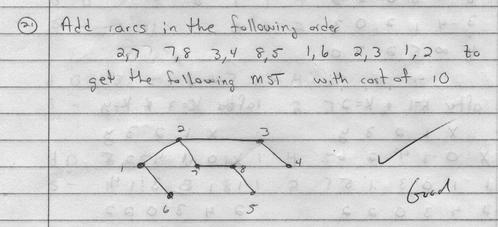 21 Add arcs in the following order
2,7 7,8 3,4 8,5 1,6 2,3 1,2 to
get the following MST with cost of 10
2 3
1 7 8 4
6 5
Good